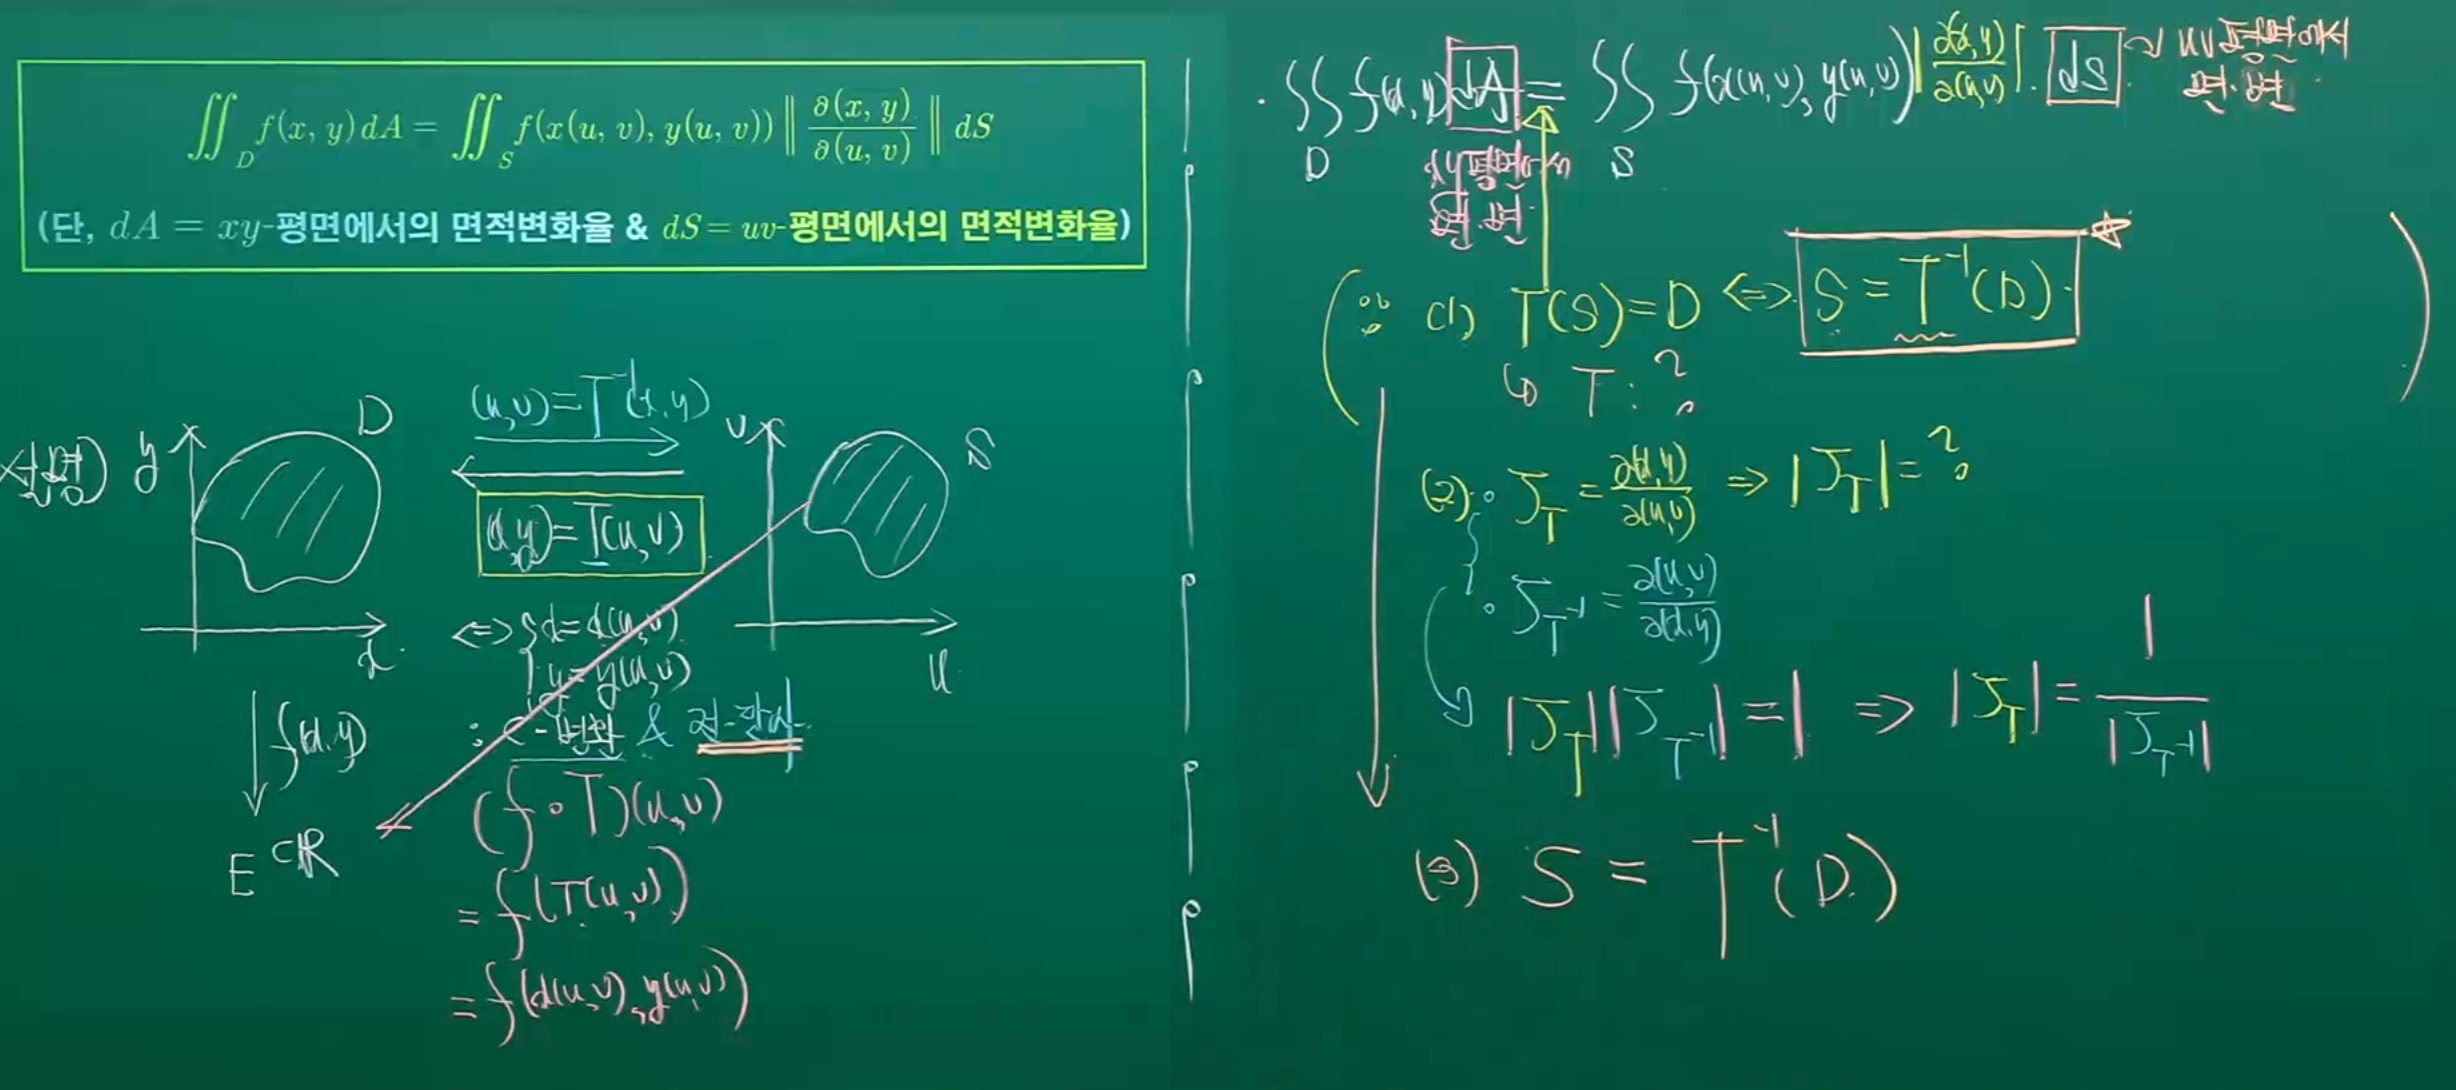 ∬_D f(x, y) dA = ∬_S f(x(u, v), y(u, v)) ‖ ∂(x, y) / ∂(u, v) ‖ dS
(단, dA = xy-평면에서의 면적변화율 & dS = uv-평면에서의 면적변화율)
설명)
y
D
x
(u,v)=T⁻¹(x,y)
(x,y)=T(u,v)
⇔ { x=x(u,v)
y=y(u,v)
v
S
u
f(x,y)
E⊂ℝ
: C¹-변환 & 전단사
(f∘T)(u,v)
= f(T(u,v))
= f(x(u,v), y(u,v))
· ∬_D f(x,y) dA = ∬_S f(x(u,v), y(u,v)) |∂(x,y)/∂(u,v)| · dS ~ uv평면에서
면.변
xy평면에서
면.변
(∵ (1) T(S)=D ⇔ S = T⁻¹(D) )
↳ T : ?
(2) · J_T = ∂(x,y)/∂(u,v) ⇒ |J_T| = ?
· J_T⁻¹ = ∂(u,v)/∂(x,y)
|J_T||J_T⁻¹| = 1 ⇒ |J_T| = 1/|J_T⁻¹|
(3) S = T⁻¹(D)